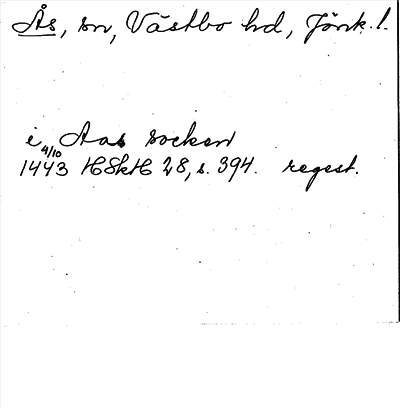 Ås, sn, Västbo hd, Jönk. l.
i Aas socken
1443 4/10 HSkH 28, s. 394. regest.